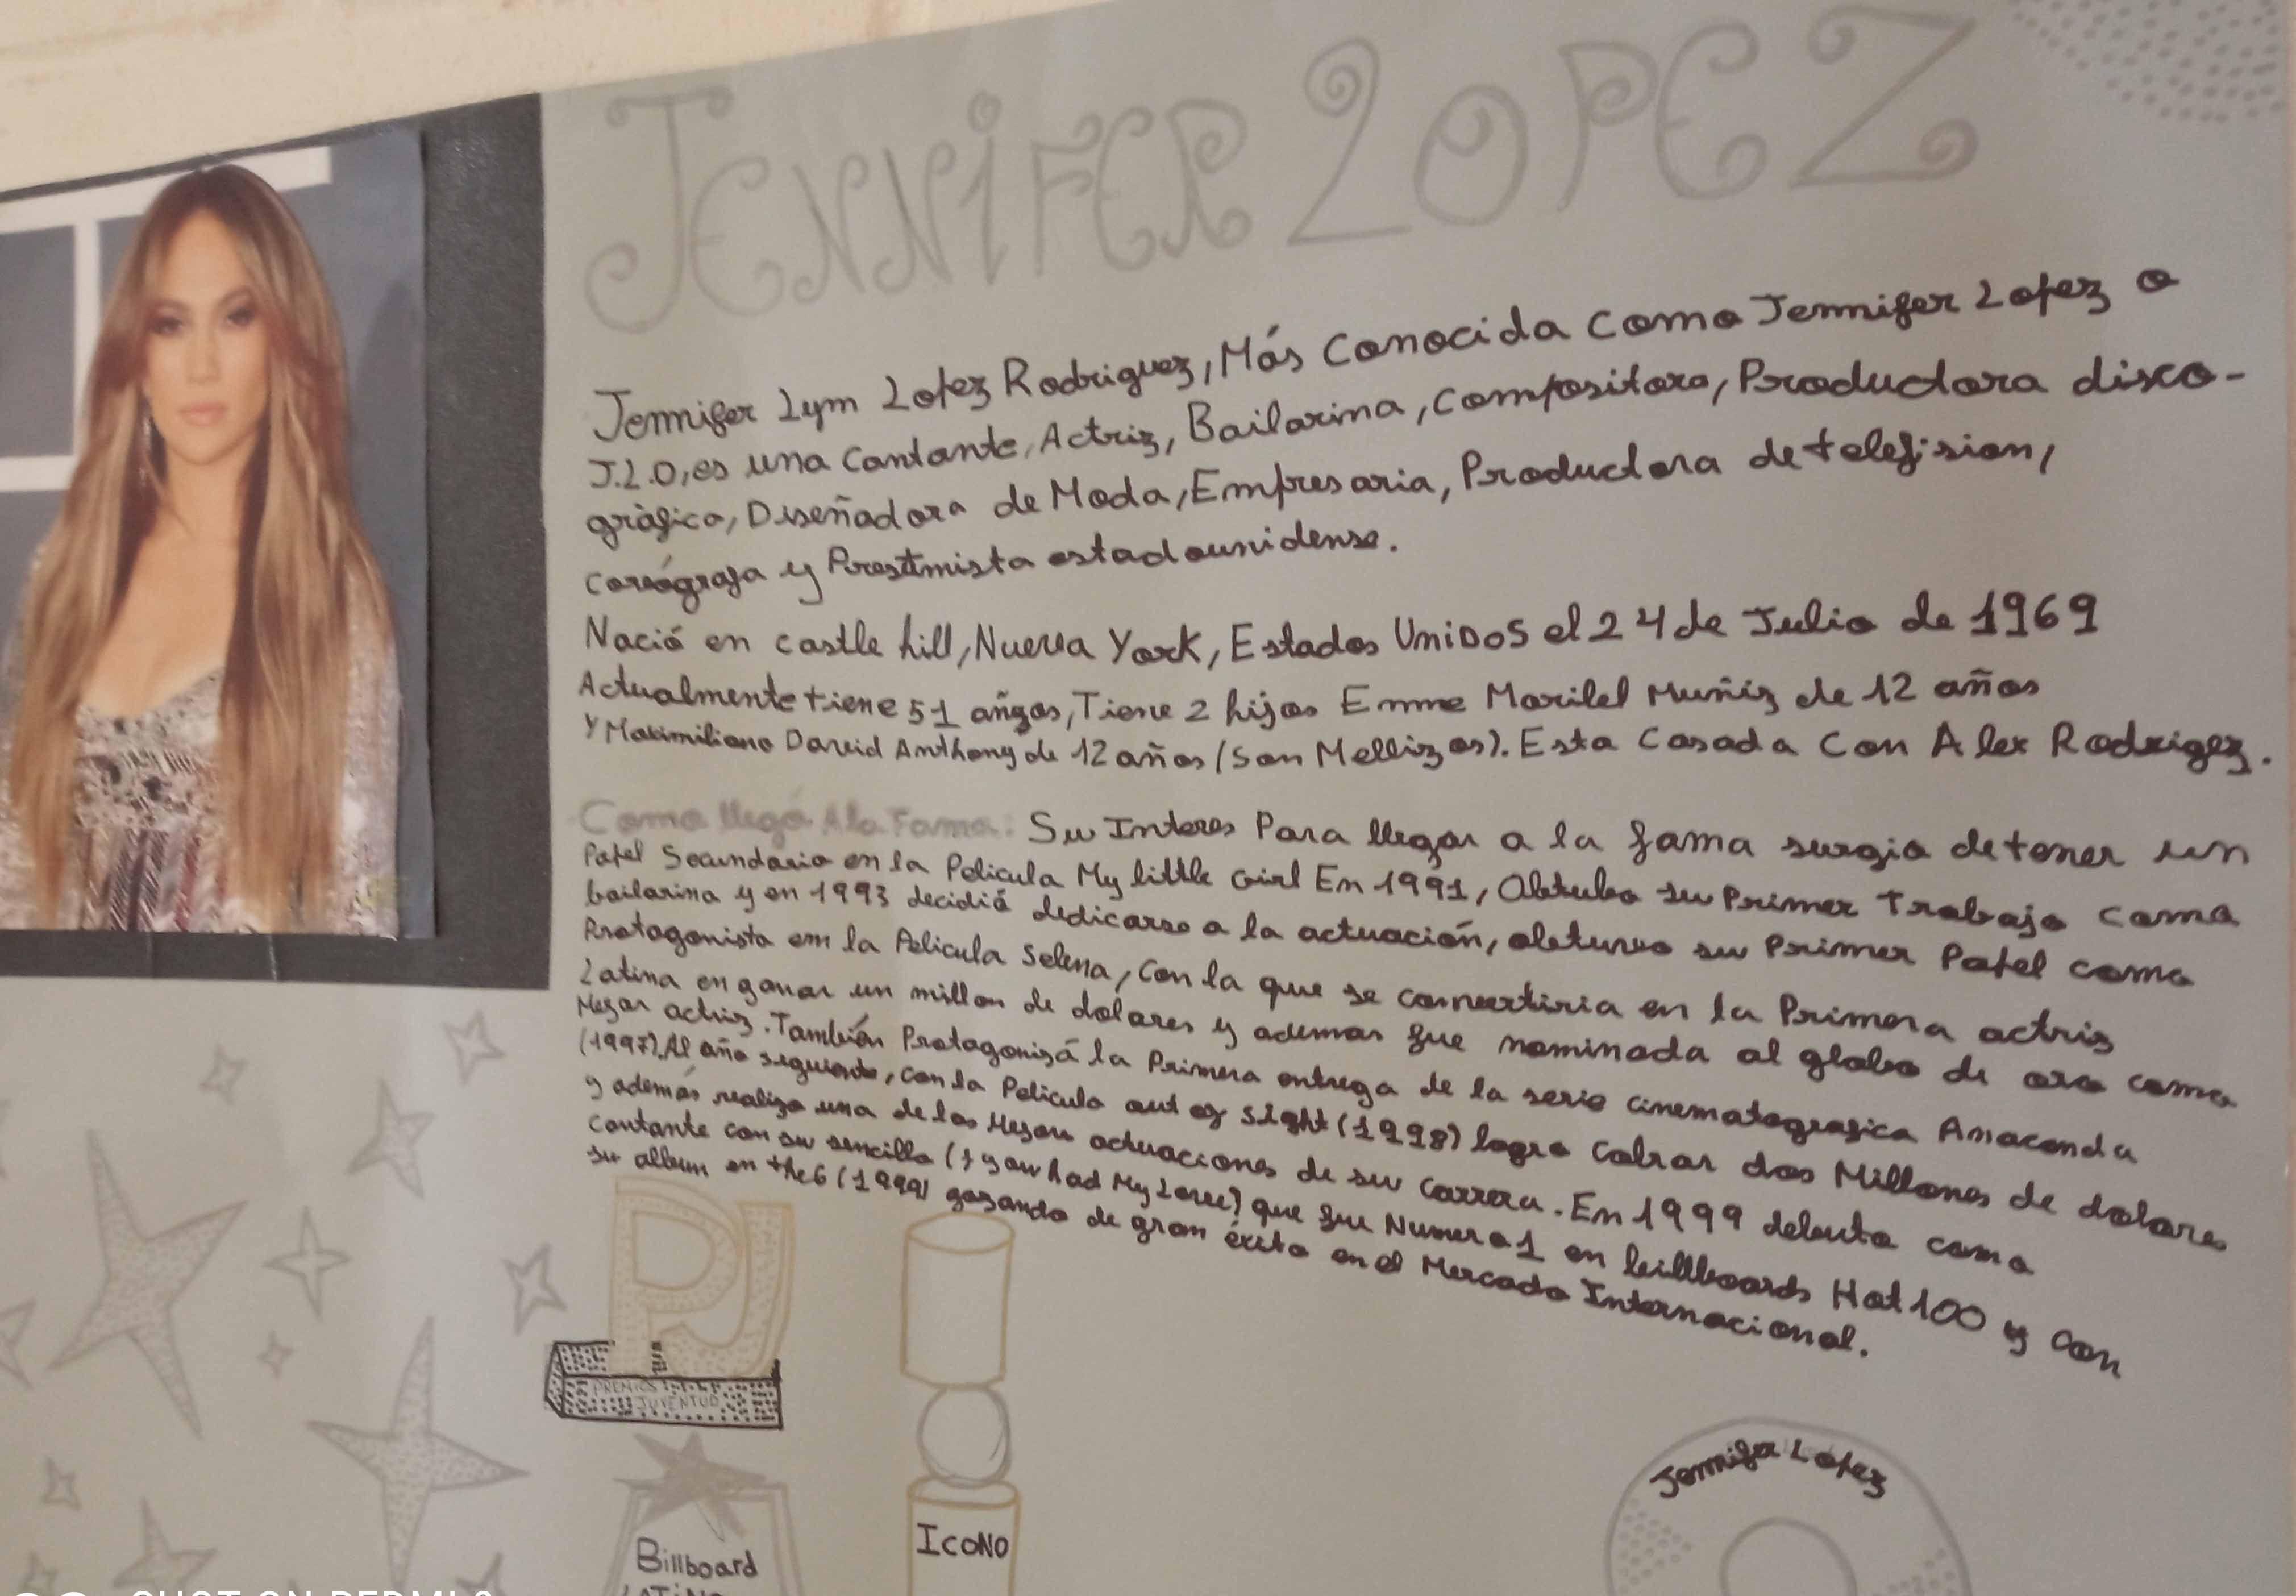 JENNIFER LOPEZ
Jennifer Lym Lopez Rodriguez, Más Conocida como Jennifer Lopez o
J.L.O, es una Cantante, Actriz, Bailarina, compositora, Productora disco-
gràfica, Diseñadora de Moda, Empresaria, Productora de telefision,
coreógrafa y Prestimista estadounidense.
Nació en castle hill, Nueva York, Estados UniDOS el 24 de Julio de 1969
Actualmente tiene 51 años, Tiene 2 hijos Emme Maribel Muñiz de 12 años
Y Maximiliano David Anthony de 12 años (Son Mellizos). Esta Casada Con Alex Rodrigez.
Como llegó A la Fama: Su Interes Para llegar a la fama surgio de tener un
Papel Secundario en la Pelicula My little Girl En 1991, Obtubo su Primer Trabajo como
bailarina y en 1993 decidió dedicarse a la actuación, obtuvo su Primer Papel como
Protagonista em la Pelicula Selena, Con la que se convertiria en la Primera actriz
Latina en ganar un millon de dolares y ademas fue nominada al globo de oro como
Mejor actriz. También Protagonizó la Primera entrega de la serie cinematografica Anaconda
(1997). Al año siguiente, con la Pelicula out of Sight (1998) logro Cobrar dos Millones de dolares
y además realizo una de las Mejores actuaciones de su Carrera. En 1999 debuto como
Cantante con su sencillo (If you had My Love) que fue Numero 1 en billboards Hot 100 y Con
su album on the 6 (1999) gozando de gran éxito en el Mercado Internacional.
PREMIOS
JUVENTUD
Billboard
LATiNo
ICONO
Jennifer Lopez
SHOT ON REDMI 9